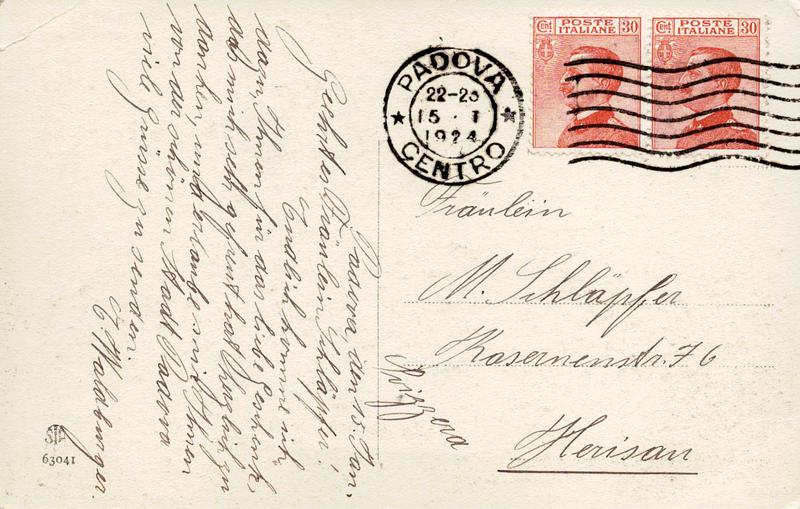 Cent POSTE ITALIANE 30
Cent POSTE ITALIANE 30
PADOVA
22-23
15 · I
1924
CENTRO
Padova, den 15. Jan.
Geehrtes Fräulein Schläpfer!
Endlich komme ich
dazu Ihnen für das liebe Geschenk,
das mich sehr gefreut hat herzlich zu
danken, und erlaube mir Ihnen
von der schönen Stadt Padova
viele Grüsse zu senden.
E. Walsburger.
Fräulein
M. Schläpfer
Kasernenstr. 76
Herisau
Svizzera
63041